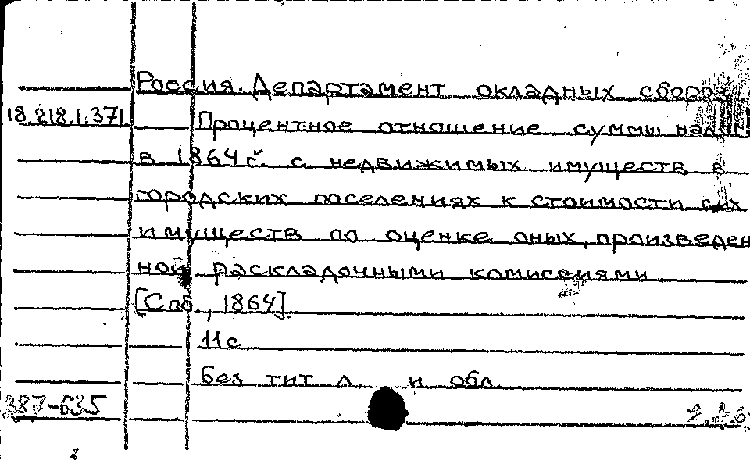 Россия. Департамент окладных сборов
18.218.1.371
Процентное отношение суммы налога
в 1864 г. с недвижимых имуществ в
городских поселениях к стоимости сих
имуществ по оценке оных, произведен
ной раскладочными комиссиями
[Спб., 1864].
11 с
Без тит л. и обл.
387-635